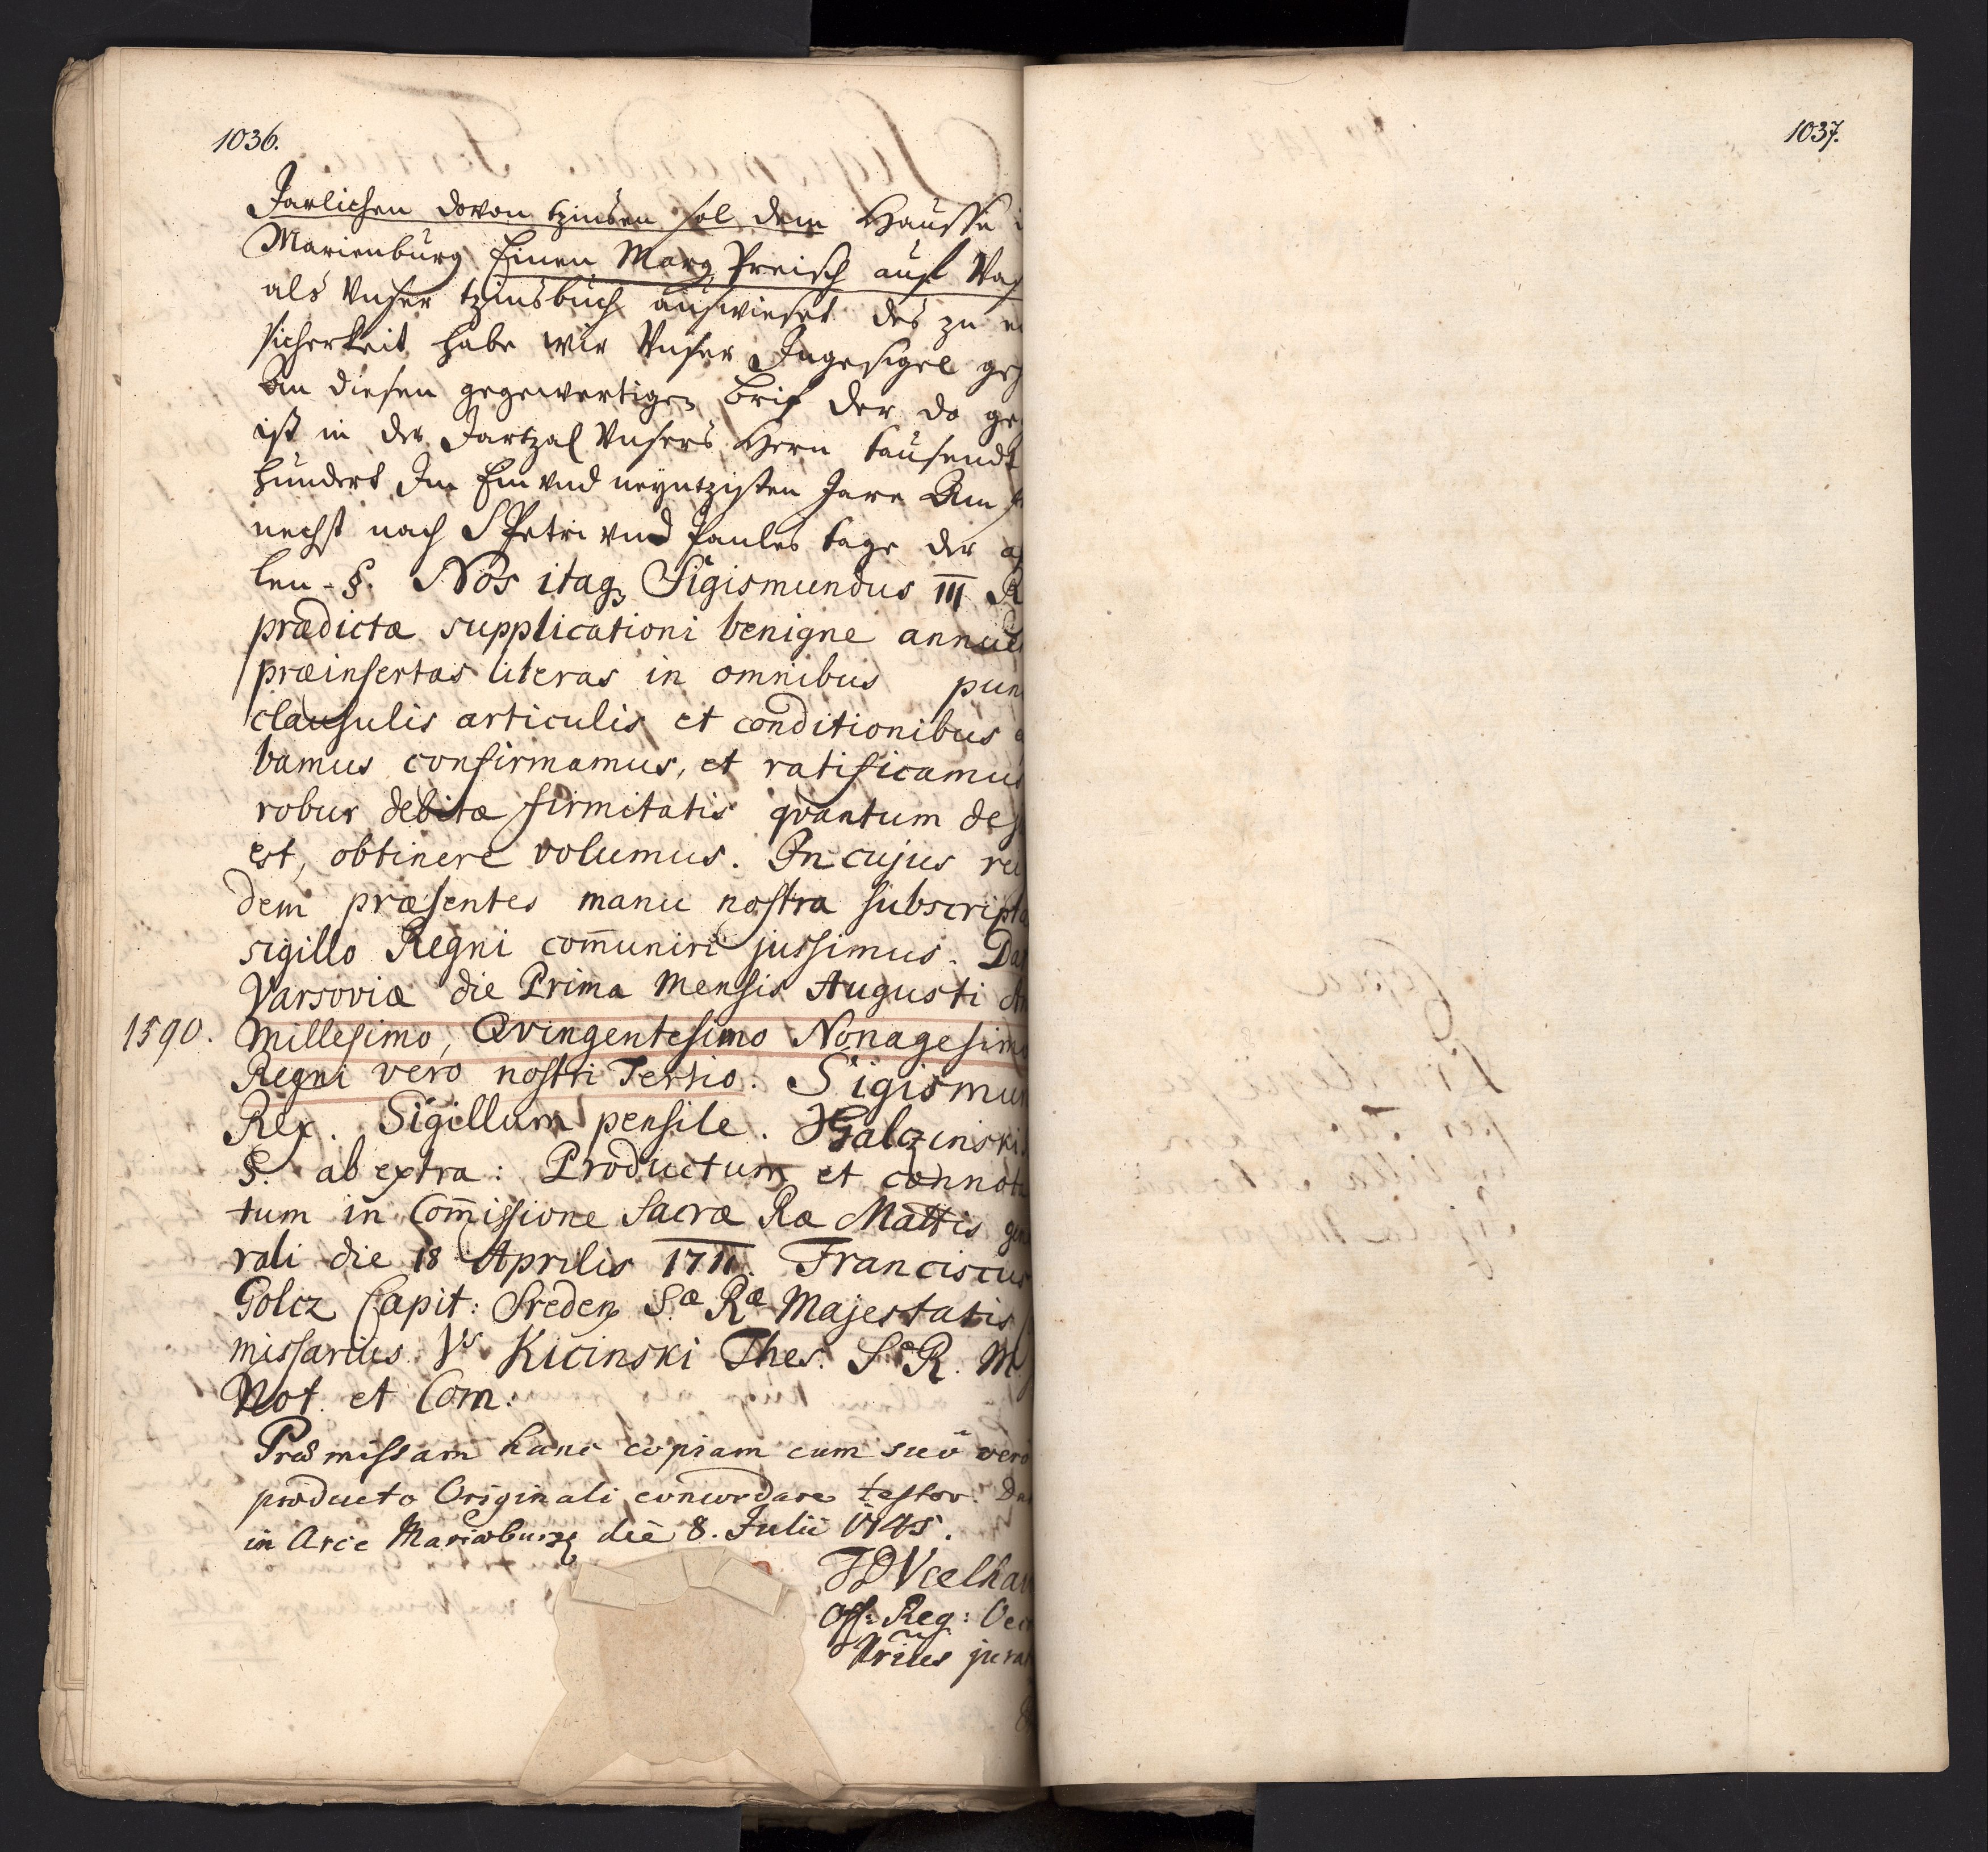 1036.
Jarlichen dovon tzinsen sol dem Hausse
Marienburg Einen Marg Preisch auf
als Vnser tzinsbuch ausweiset des zu
sicherkeit habe wir Vnser Ingesigel
an diesen gegewertigen brif der do
ist in der Jartzal Vnsers Hern tausendt
hundert Im Ein vnd neyntzigsten Jare Am
nechst nach S Petri vnd Paules tage der
len - §. Nos itaq Sigismundus III R
prædictæ supplicationi benigne annue
præinsertas literas in omnibus pun
clausulis articulis et conditionibus
bamus confirmamus, et ratificamus
robur debitæ firmitatis qvantum de
est, obtinere volumus. In cujus rei
dem præsentes manu nostra subscripta
sigillo Regni com̄uniri jussimus. Dat
Varsoviæ die Prima Mensis Augusti An
1590. Millesimo, Qvingentesimo Nonagesimo
Regni vero nostri Tertio. Sigismun
Rex. Sigillum pensile. JGalczinski
§. ab extra: Productum et connota
tum in Com̄issione Sacræ Ræ Mattis gene
rali die 18 Aprilis 1711. Franciscus
Golcz Capit: Sreden Sæ Ræ Majestatis
missarius. Vs Kicinski Thes. S R. M
Not. et Com:
Præmissam hanc copiam cum suo vero
producto Originali concordare testor. Dat
in Arce Mariæburg die 8. Julii 1745.
Off: Reg: Oec
jurat
1037.